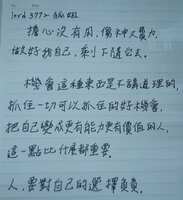 擔心沒有用,傷神又費力,
做好我自己,剩下隨公去。
機會這種東西是不講道理的,
抓住一切可以抓住的好機會,
把自己變成更有能力更有價值的人,
這一點比什麼都重要。
人,需對自己的選擇負責。